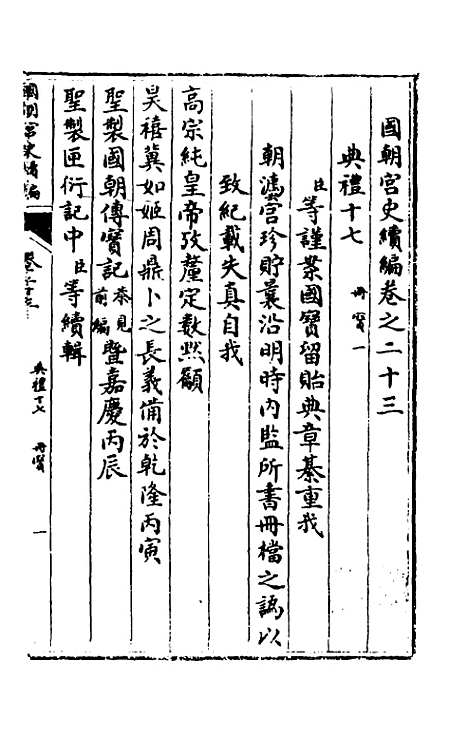 國朝宮史續編卷之二十三
典禮十七　冊寶一
臣等謹案國寶留貽典章綦重我
朝瀛宮珍貯曩沿明時內監所書冊檔之譌以
致紀載失真自我
高宗純皇帝攷釐定數煕顧
昊禧冀如姬周鼎卜之長義備於乾隆丙寅
聖製國朝傳寶記恭見前編暨嘉慶丙辰
聖製匣衍記中臣等續輯
國朝宮史續編
典禮十七　冊寶　一